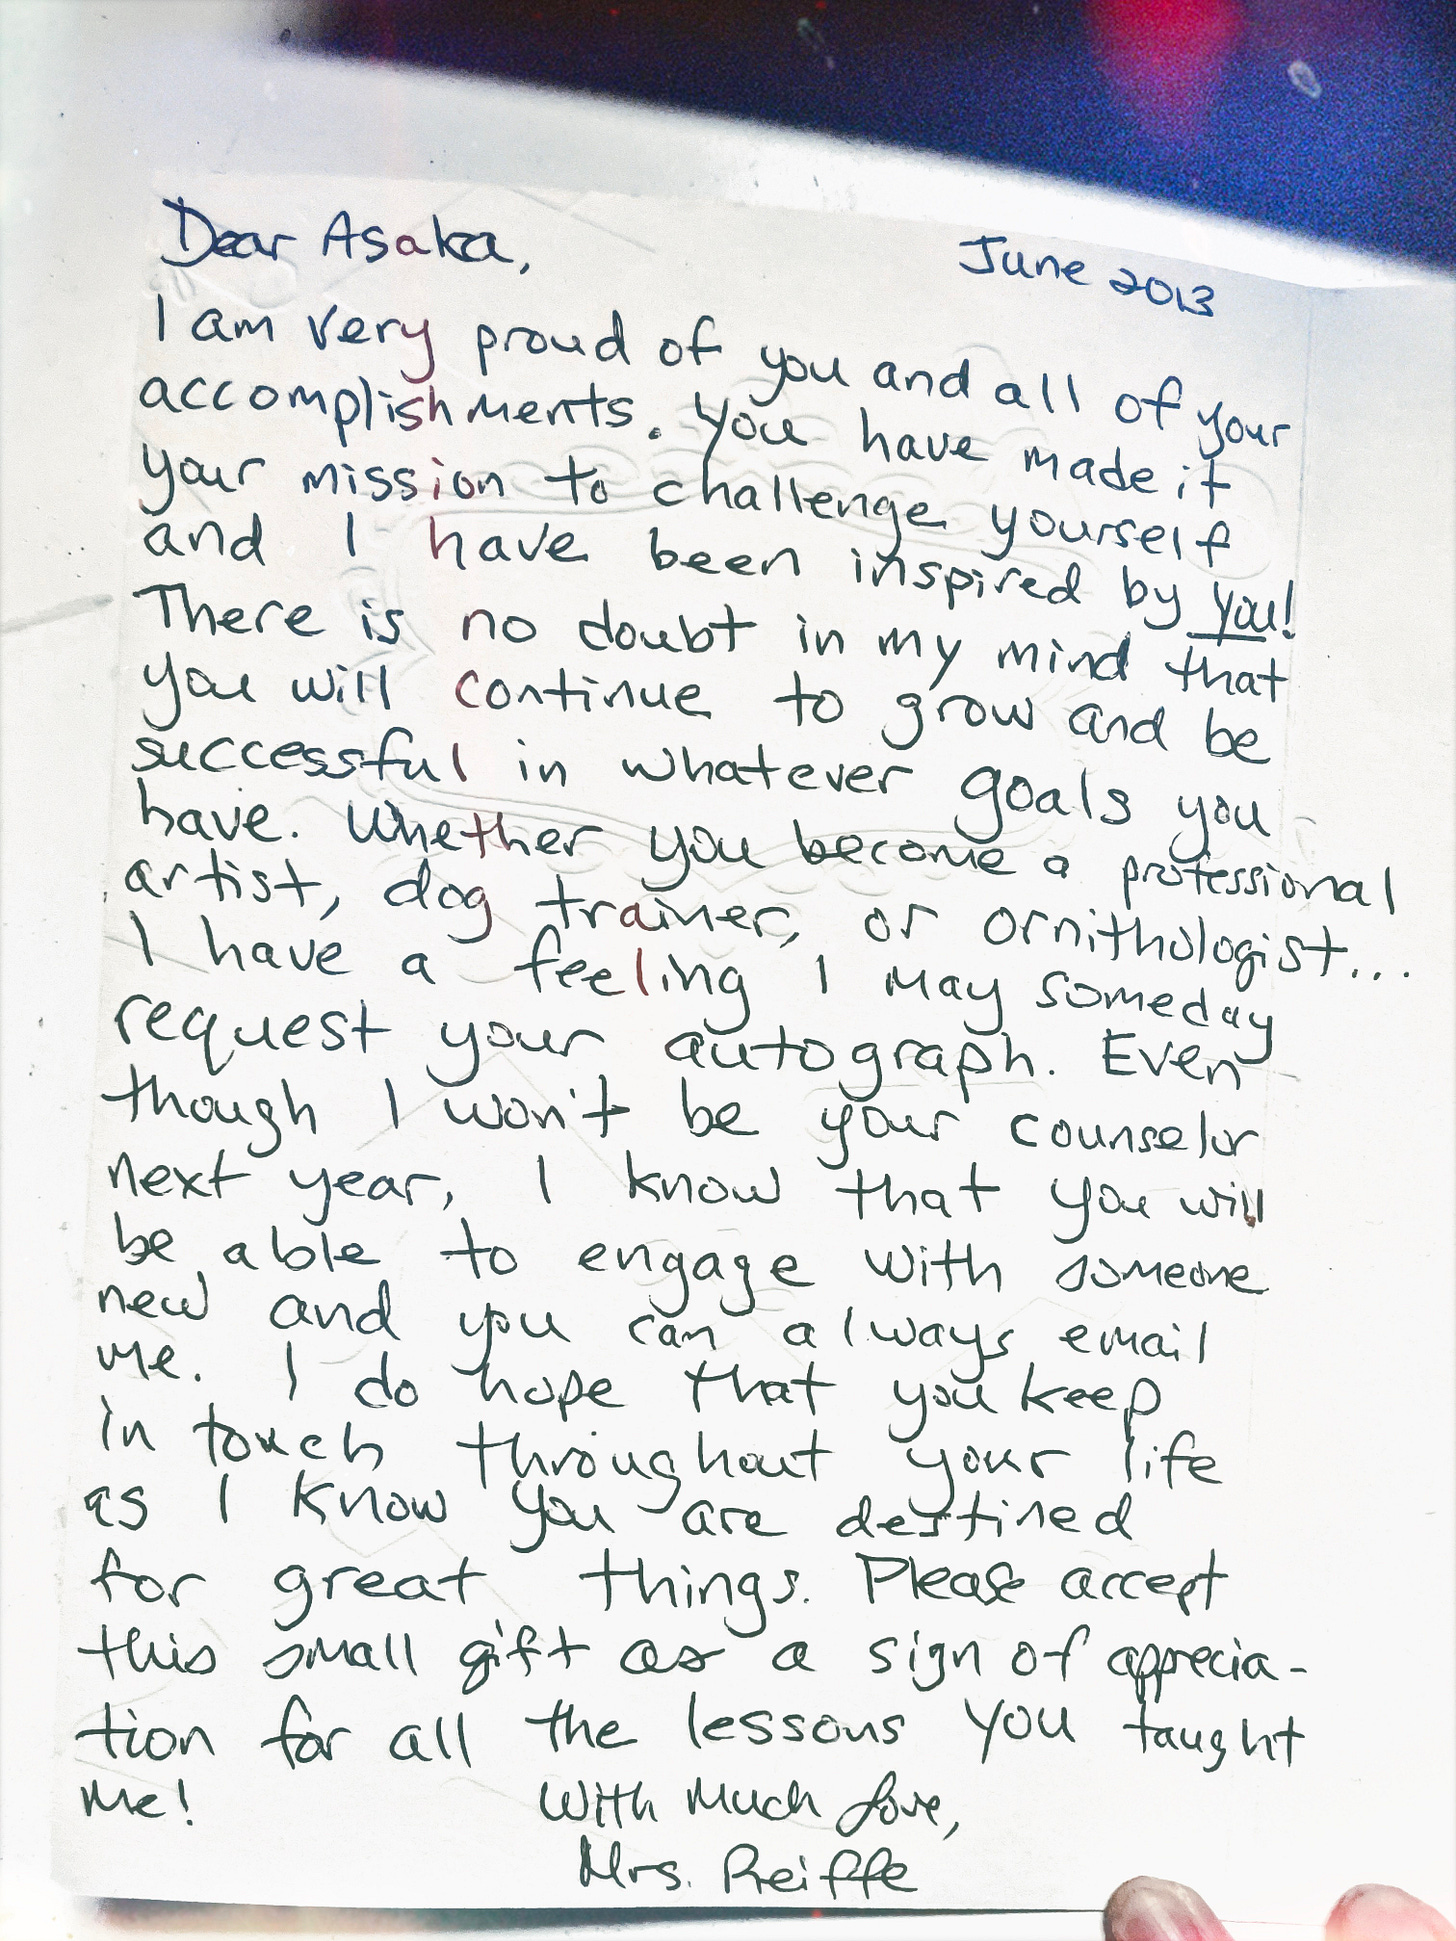 Dear Asaka,
June 2013
I am very proud of you and all of your
accomplishments. You have made it
your mission to challenge yourself
and I have been inspired by you!
There is no doubt in my mind that
you will continue to grow and be
successful in whatever goals you
have. Whether you become a professional
artist, dog trainer, or ornithologist...
I have a feeling I may someday
request your autograph. Even
though I won't be your counselor
next year, I know that you will
be able to engage with someone
new and you can always email
me. I do hope that you keep
in touch throughout your life
as I know you are destined
for great things. Please accept
this small gift as a sign of apprecia-
tion for all the lessons you taught
me!
With Much Love,
Mrs. Reiffe